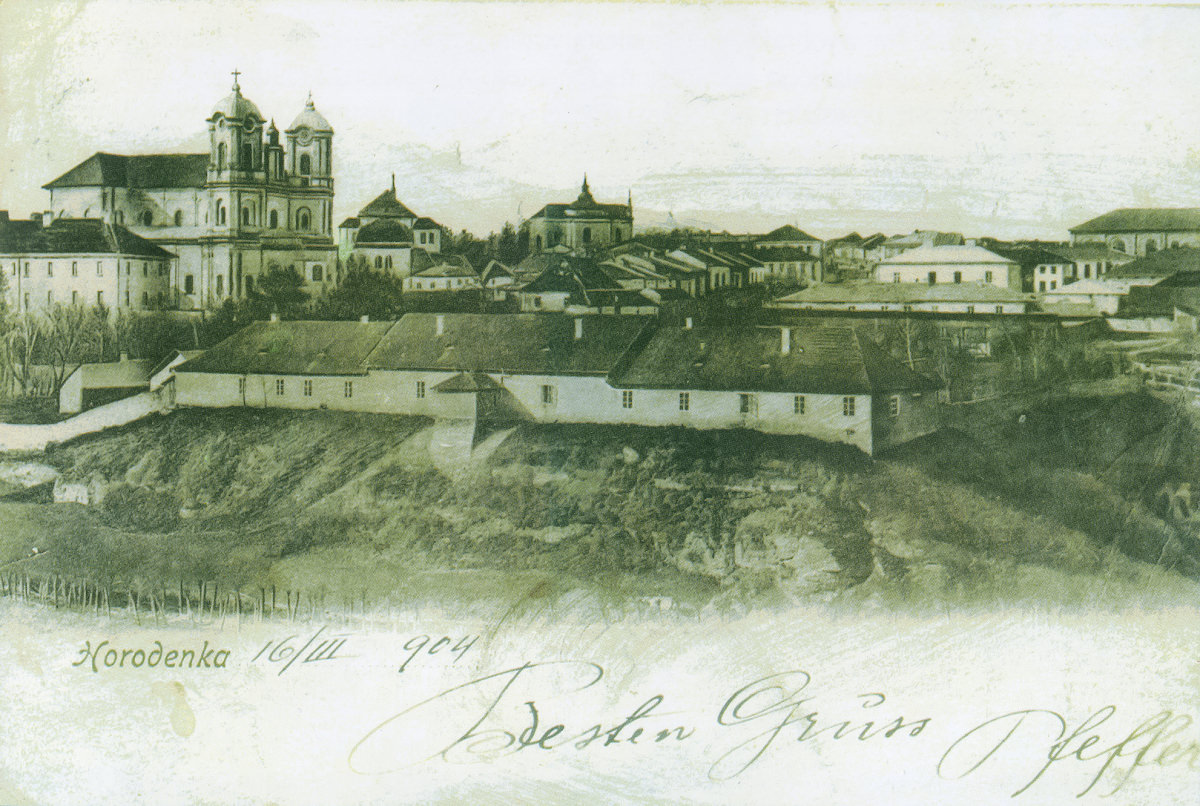 Horodenka 16/III 904
Besten Gruss Pfeffer